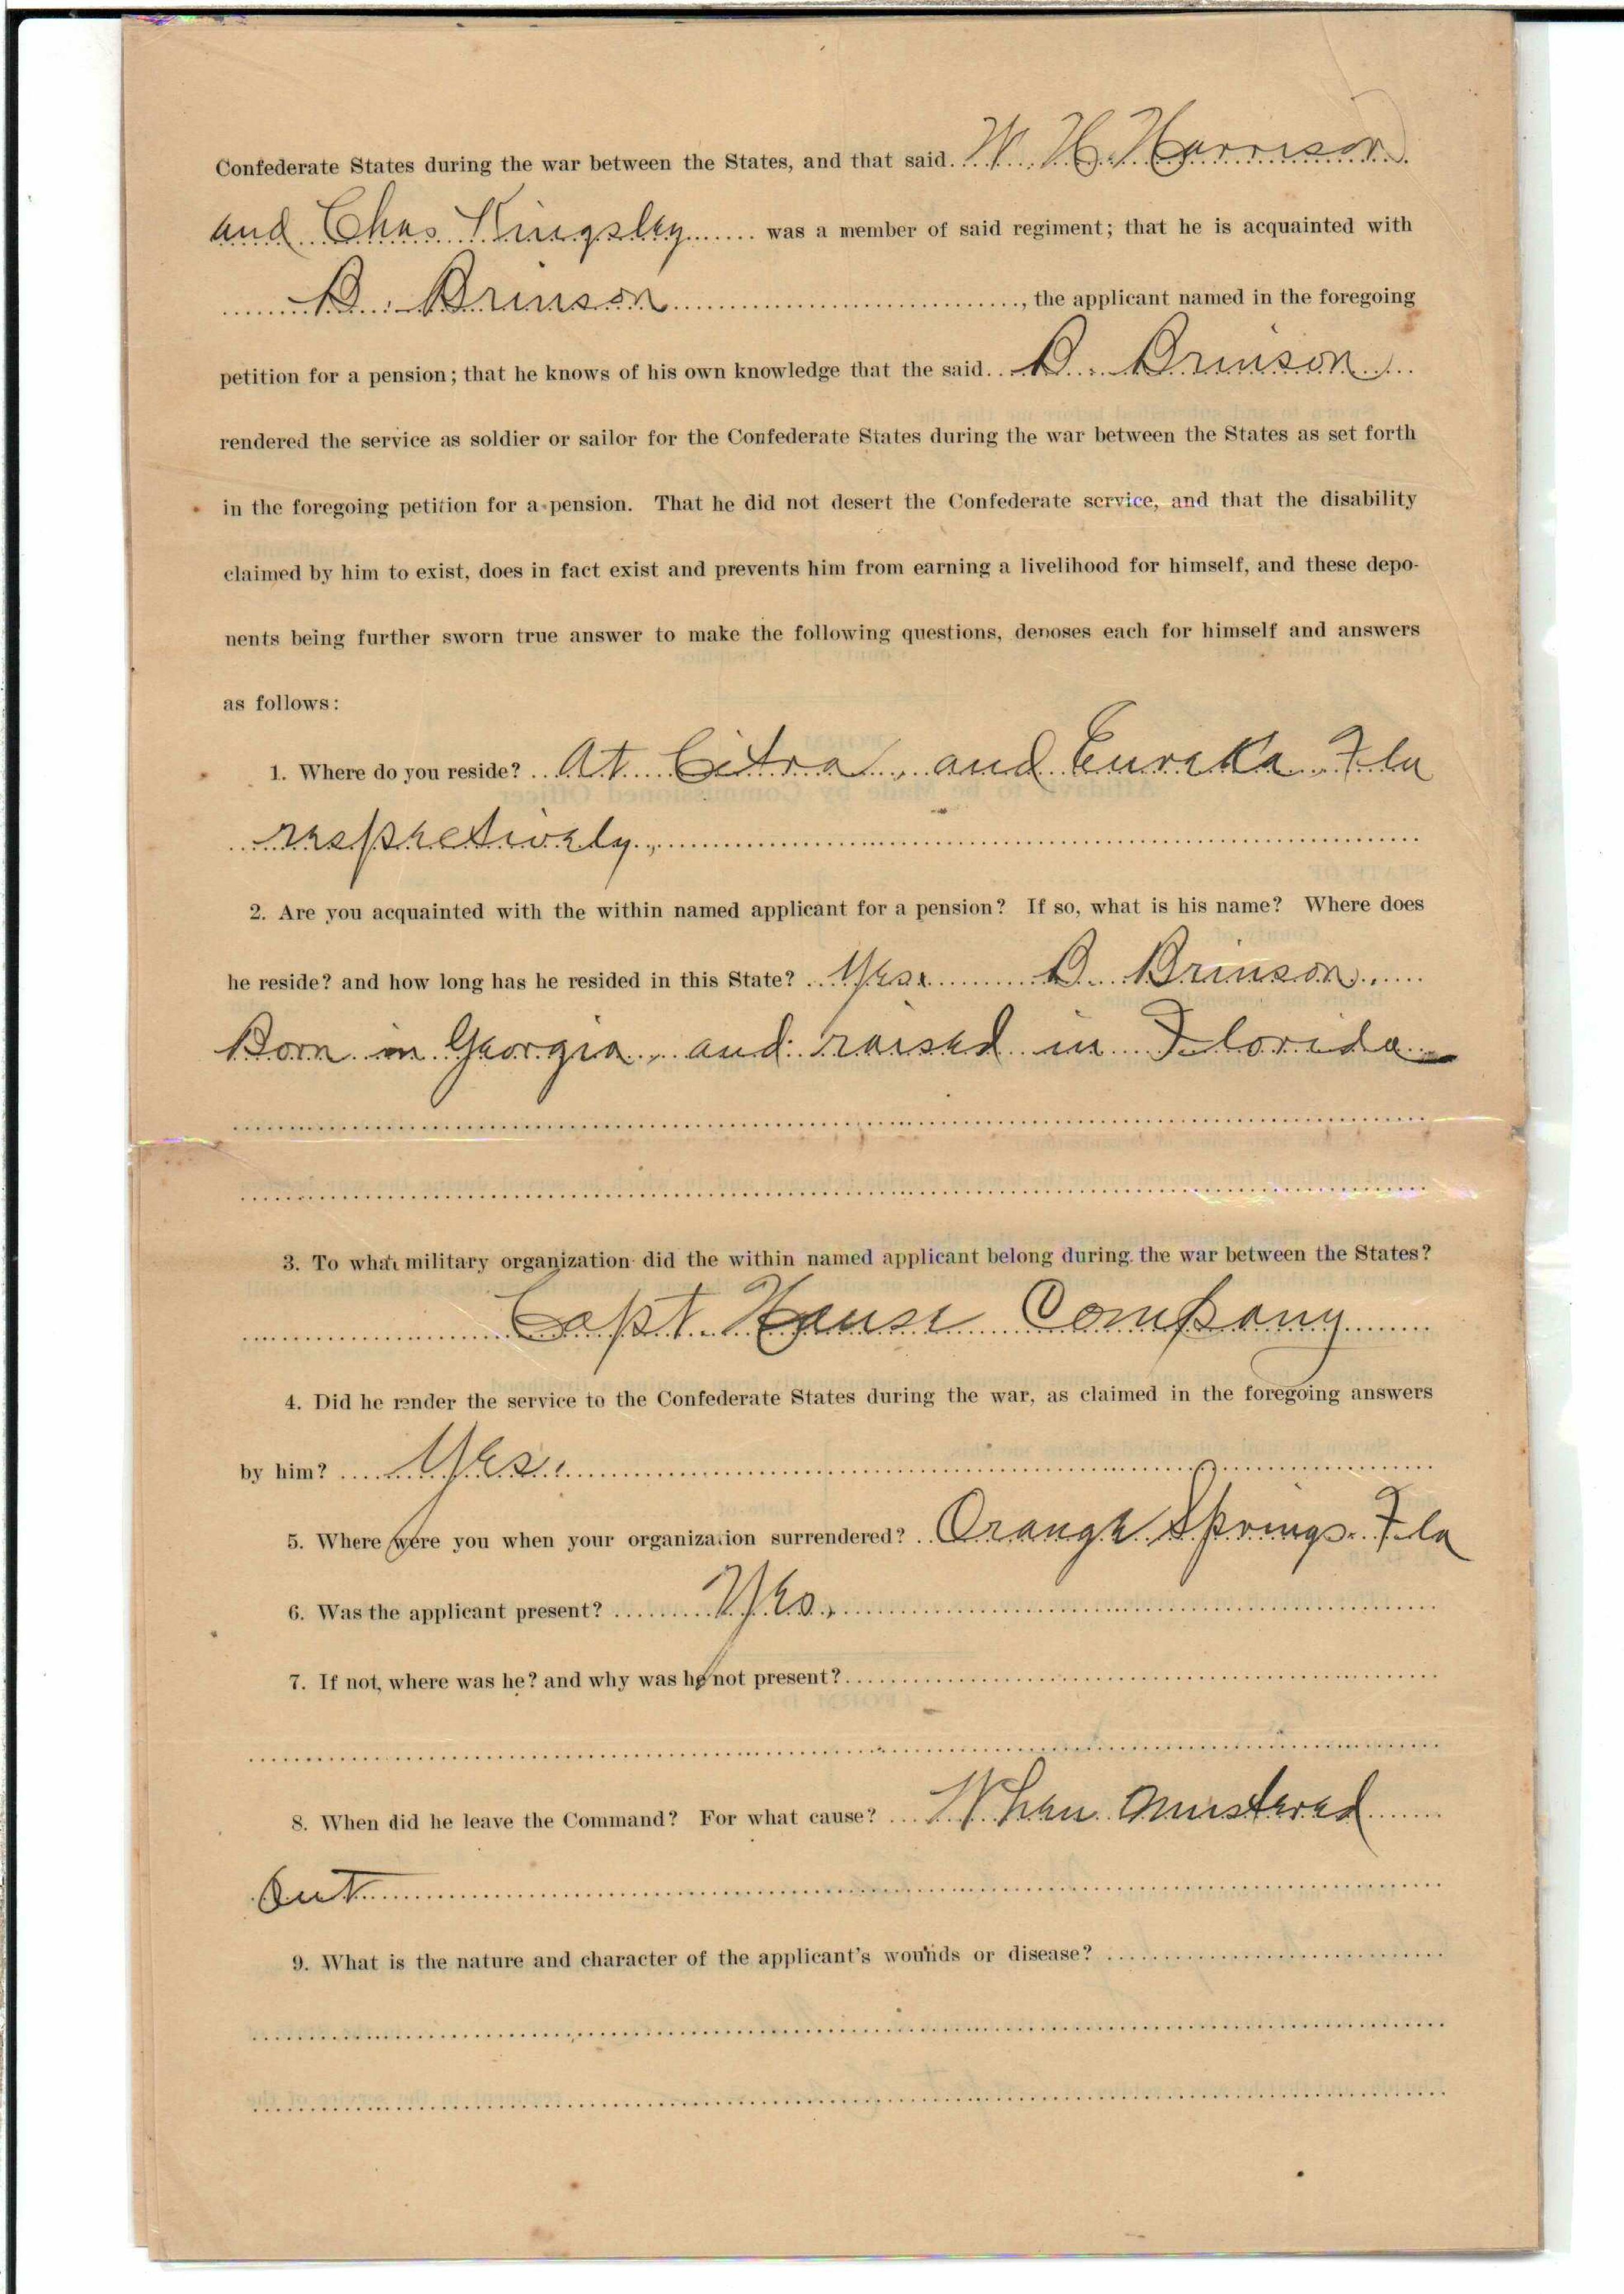 Confederate States during the war between the States, and that said. W. H. Harrison
and Chas Kingsley was a member of said regiment; that he is acquainted with
B. Brinson, the applicant named in the foregoing
petition for a pension; that he knows of his own knowledge that the said B. Brinson
rendered the service as soldier or sailor for the Confederate States during the war between the States as set forth
in the foregoing petition for a pension. That he did not desert the Confederate service, and that the disability
claimed by him to exist, does in fact exist and prevents him from earning a livelihood for himself, and these depo-
nents being further sworn true answer to make the following questions, deposes each for himself and answers
as follows:
1. Where do you reside? At Citra and Eureka Fla
respectively.
2. Are you acquainted with the within named applicant for a pension? If so, what is his name? Where does
he reside? and how long has he resided in this State? Yes. B. Brinson
Born in Georgia, and raised in Florida
3. To what military organization did the within named applicant belong during the war between the States?
Capt. Hause Company
4. Did he render the service to the Confederate States during the war, as claimed in the foregoing answers
by him? Yes.
5. Where were you when your organization surrendered? Orange Springs Fla
6. Was the applicant present? Yes.
7. If not, where was he? and why was he not present?
8. When did he leave the Command? For what cause? When mustered
out
9. What is the nature and character of the applicant's wounds or disease?